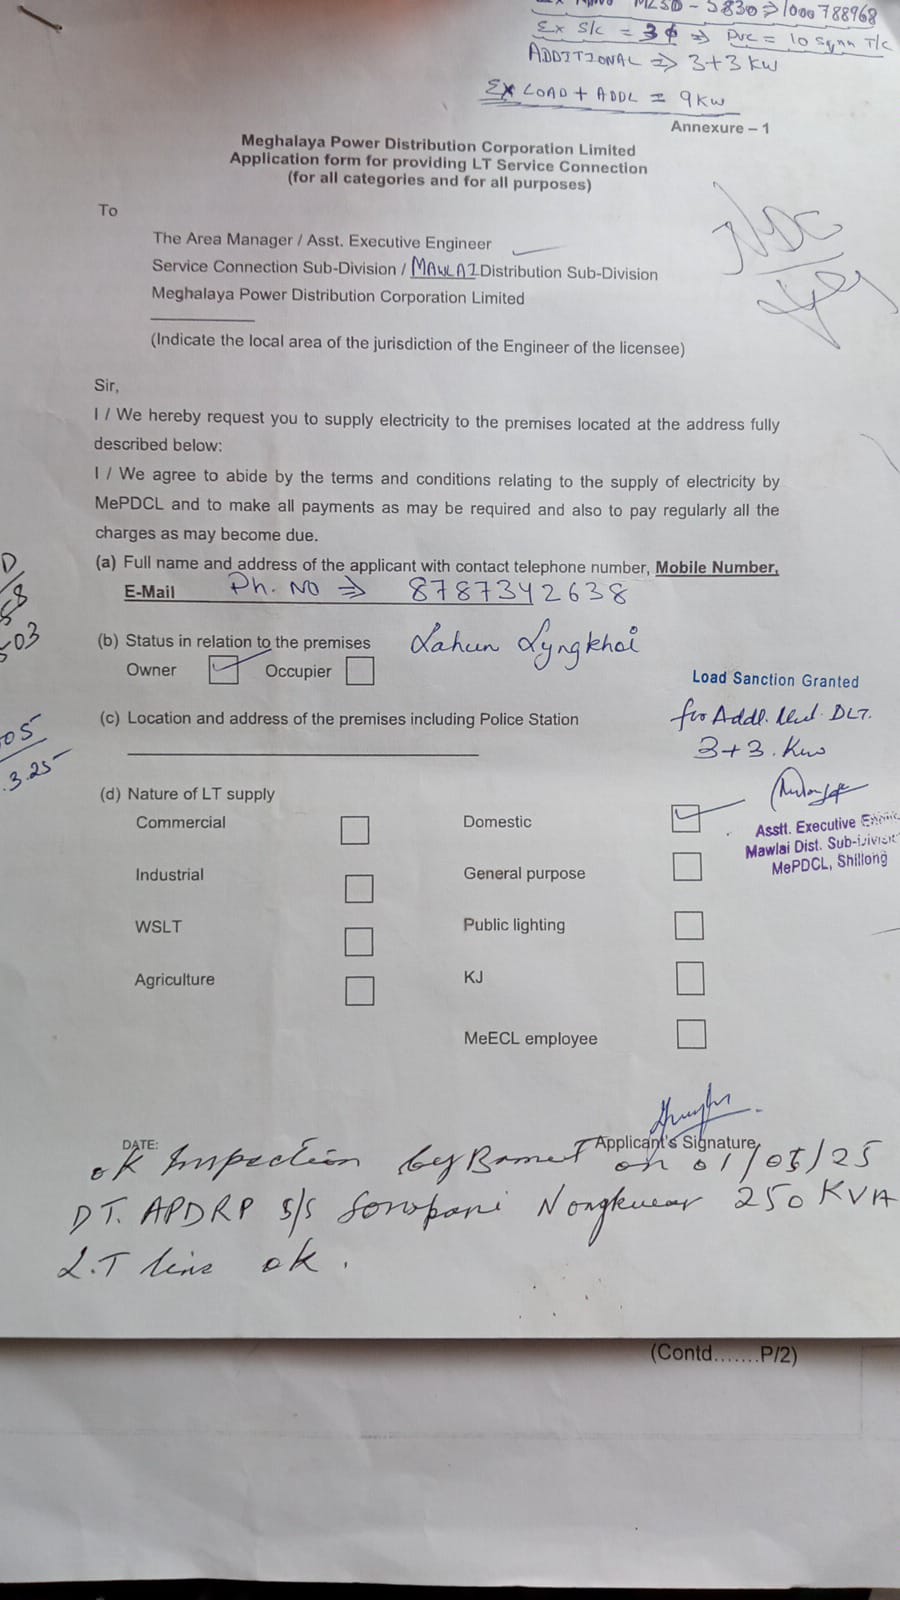 MLSD - 5830 ⇒ 1000788968
Ex S/C = 3ϕ ⇒ PVC = 10 sqmm T/C
ADDITIONAL ⇒ 3+3 KW
Ex LOAD + ADDL = 9KW
Annexure – 1
Meghalaya Power Distribution Corporation Limited
Application form for providing LT Service Connection
(for all categories and for all purposes)
To
The Area Manager / Asst. Executive Engineer
Service Connection Sub-Division / MAWLAI Distribution Sub-Division
Meghalaya Power Distribution Corporation Limited
(Indicate the local area of the jurisdiction of the Engineer of the licensee)
Sir,
I / We hereby request you to supply electricity to the premises located at the address fully
described below:
I / We agree to abide by the terms and conditions relating to the supply of electricity by
MePDCL and to make all payments as may be required and also to pay regularly all the
charges as may become due.
(a) Full name and address of the applicant with contact telephone number, Mobile Number,
E-Mail Ph. NO ⇒ 8787342638
(b) Status in relation to the premises Lahun Lyngkhoi
Owner Occupier
Load Sanction Granted
for Addl.
3+3. Kw
(c) Location and address of the premises including Police Station
(d) Nature of LT supply
Commercial Domestic
Asstt. Executive
Mawlai Dist. Sub-Divisi
MePDCL, Shillong
Industrial General purpose
WSLT Public lighting
Agriculture KJ
MeECL employee
DATE: Applicant's Signature
ok Inspection by on 01/05/25
DT. APDRP S/S 250 KVA
L.T line ok.
03
05
3.25
(Contd.......P/2)